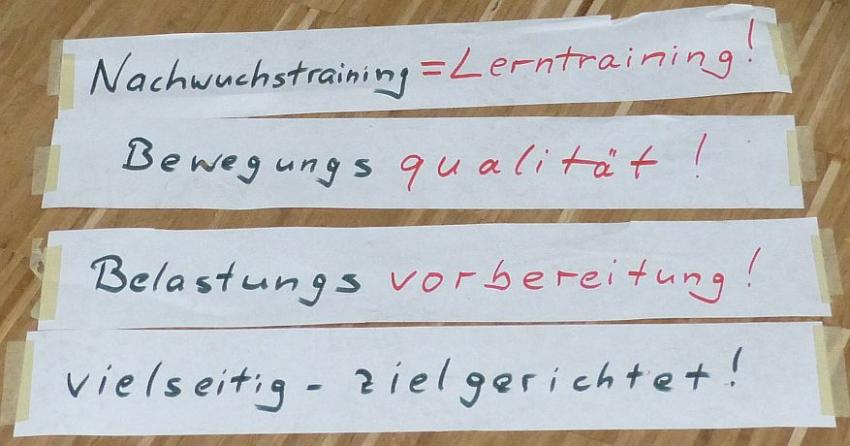 Nachwuchstraining = Lerntraining!
Bewegungsqualität!
Belastungsvorbereitung!
vielseitig - zielgerichtet!